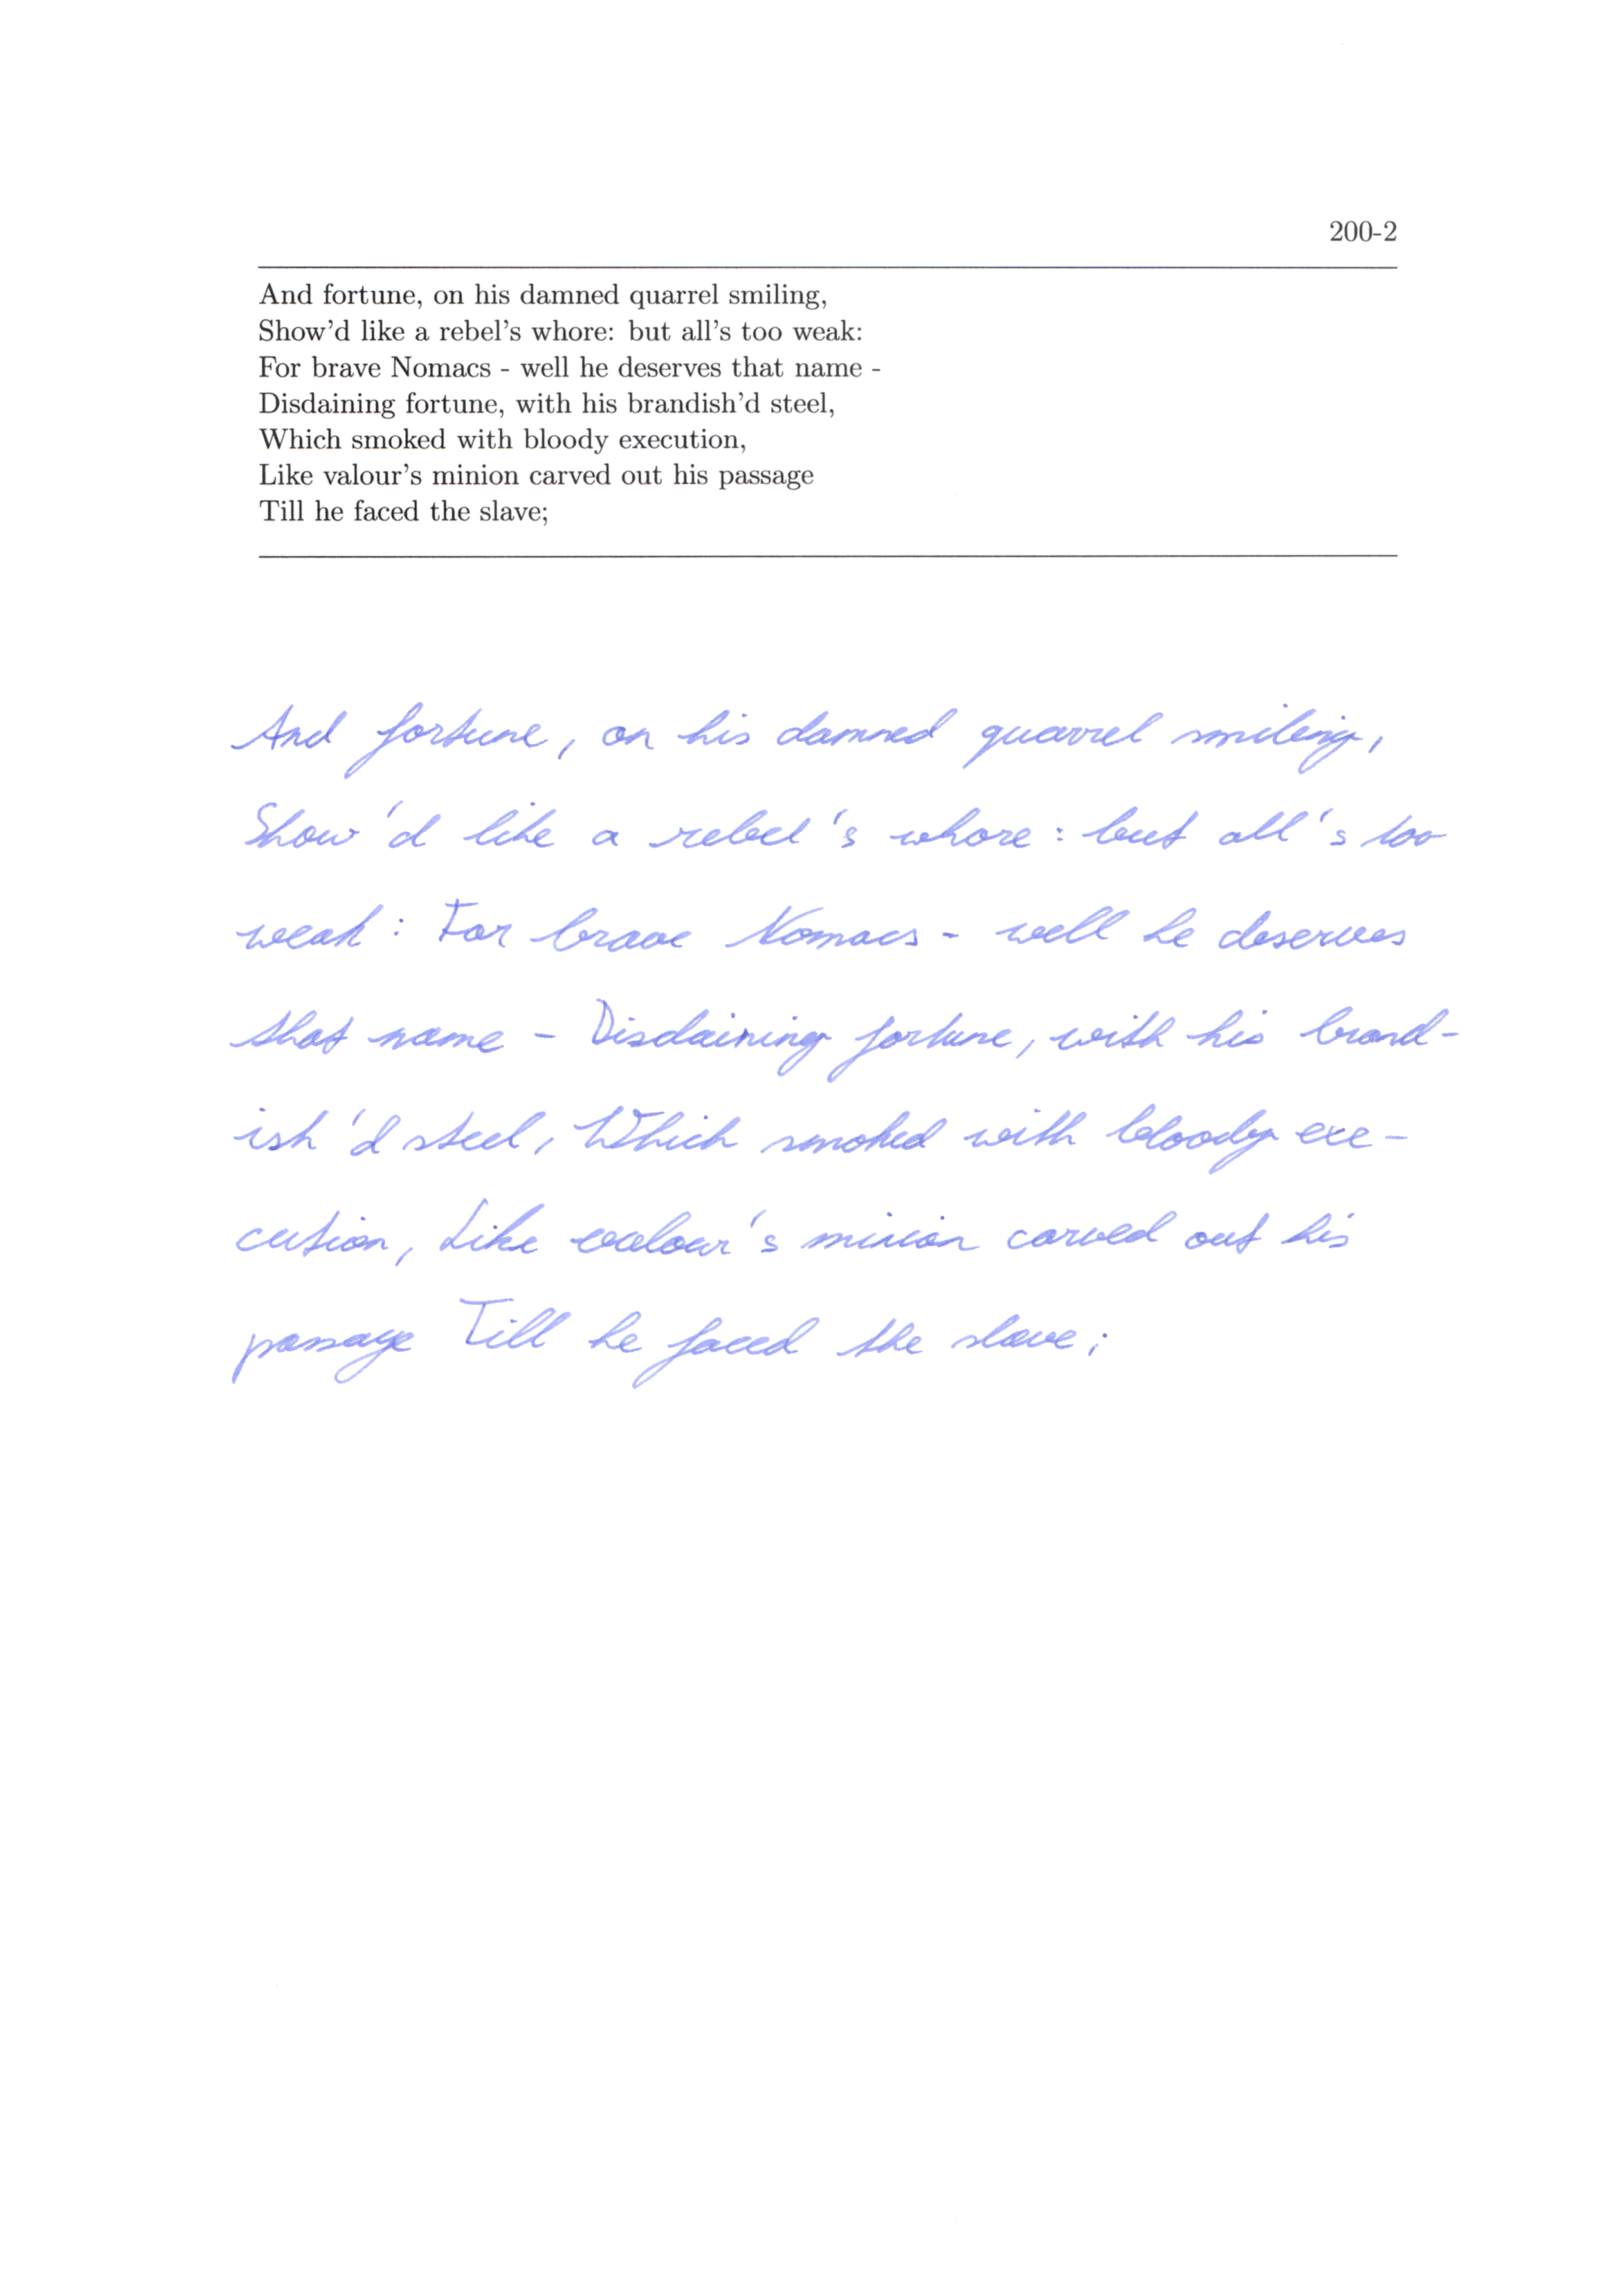 200-2
And fortune, on his damned quarrel smiling,
Show'd like a rebel's whore: but all's too weak:
For brave Nomacs - well he deserves that name -
Disdaining fortune, with his brandish'd steel,
Which smoked with bloody execution,
Like valour's minion carved out his passage
Till he faced the slave;
And fortune, on his damned quarrel smiling,
Show'd like a rebel's whore: but all's too
weak: For brave Nomacs - well he deserves
that name - Disdaining fortune, with his brand-
ish'd steel, Which smoked with bloody exe-
cution, Like valour's minion carved out his
passage Till he faced the slave;